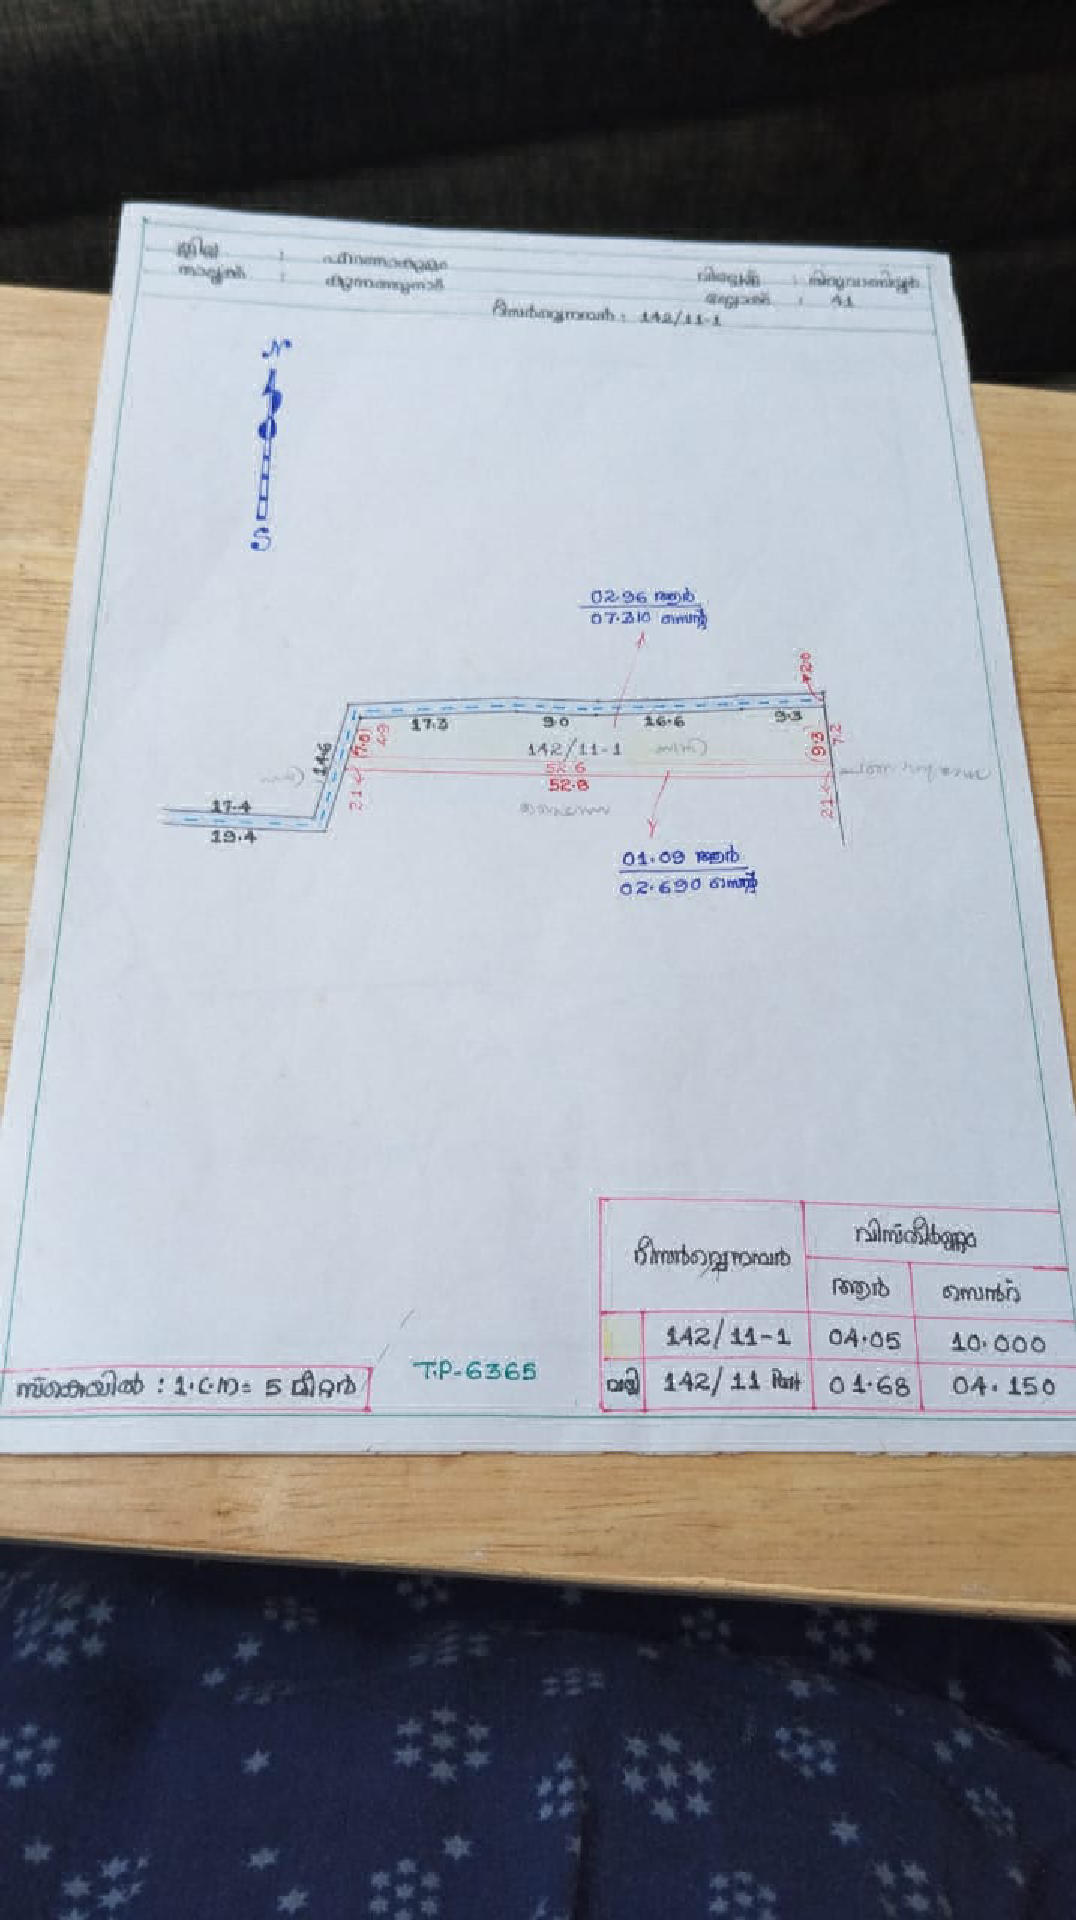 ജില്ല : എറണാകുളം
താലൂക്ക് : കുന്നത്തുനാട്
വില്ലേജ് :
ബ്ലോക്ക് : 41
റീസർവ്വെനമ്പർ : 142/11-1
N
S
02.96 ആർ
07.310 സെന്റ്
2.0
17.3 9.0 16.6 9.3
14.6 (7.0) 4.9 142/11-1 (9.3) 7.2
52.6
52.8
21.4 21.4
17.4
19.4
01.09 ആർ
02.690 സെന്റ്
റീസർവ്വെനമ്പർ വിസ്തീർണ്ണം
ആർ സെൻറ്
142/11-1 04.05 10.000
വഴി 142/11 Part 01.68 04.150
T.P-6365
സ്കെയിൽ : 1.C.M = 5 മീറ്റർ